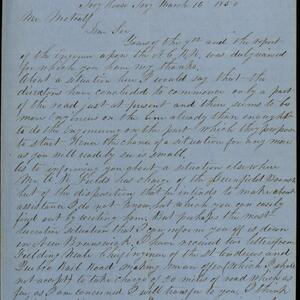 March 16 18
Mr Metcalf
Dear Sir
Yours of the 9th and the report
of the Engineer upon the was duly received
for which you have my thanks.
About a situation here I would say that the
directors have concluded to commence only a part
of the road just at present and there seems to be
more Engineers on the line already than enough
to do the Engineering on the part which they propose
to start. Hence the chance of a situation for any more
as you will readily see is small.
As to informing you about a situation elsewhere
Mr Fields has charge of the Greenfield Branch
but of the disposition that he intends to make about
assistance I do not know, but which you can easily
find out by writing him. But perhaps the most
situation that I can inform you off is down
in New Brunswick. I have received two letters from
Fielding Neale Chief Engineer of the St Andrews and
Quebec Rail Road making me an offer which I shall
not accept to take charge of 20 miles of road which as
far as I am concerned I will transfer to you. I think